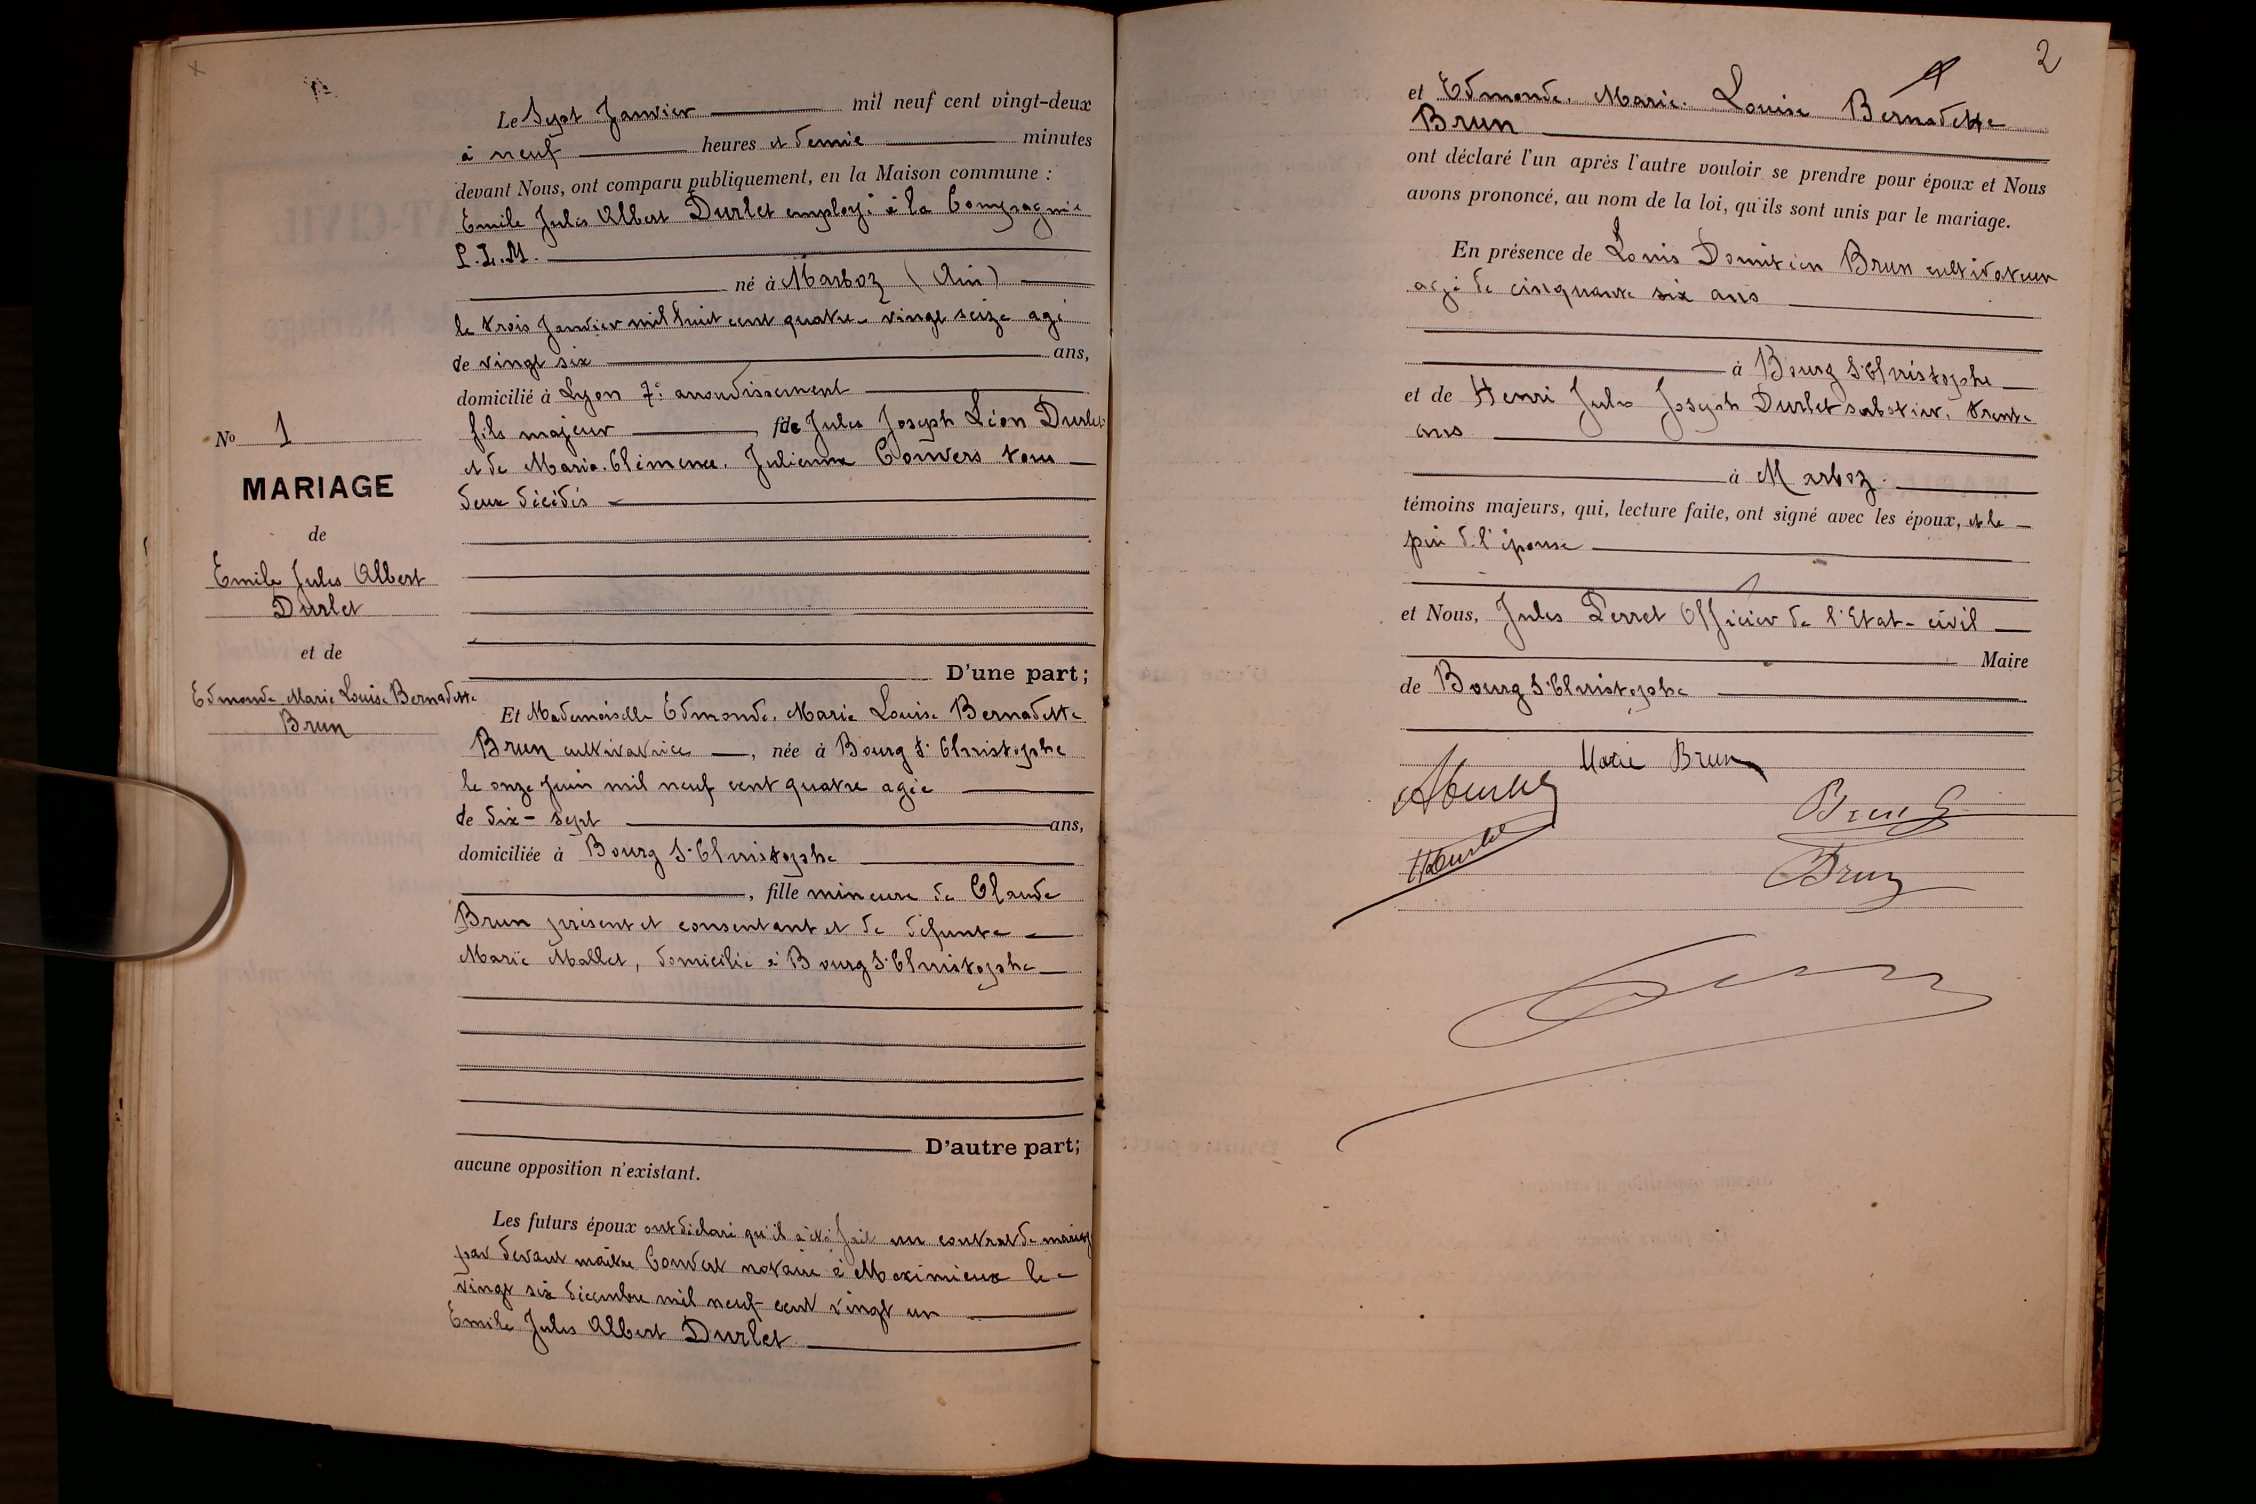 Le Sept Janvier mil neuf cent vingt-deux
à neuf heures et demie minutes
devant Nous, ont comparu publiquement, en la Maison commune :
Emile Jules Albert Durlet employé à la Compagnie
P.L.M.
né à Marboz (Ain)
le trois Janvier mil huit cent quatre-vingt seize agé
de vingt six ans,
domicilié à Lyon 7e arrondissement
fils majeur de Jules Joseph Léon Durlet
et de Marie. Clémence. Julienne Convers tous
deux décédés
No 1
MARIAGE
de
Emile Jules Albert
Durlet
et de
Edmonde Marie Louise Bernadette
Brun
D'une part;
Et Mademoiselle Edmonde. Marie Louise Bernadette
Brun cultivatrice, née à Bourg St Christophe
le onze juin mil neuf cent quatre agée
de dix-sept ans,
domiciliée à Bourg St Christophe
, fille mineure de Claude
Brun présent et consentant et de défunte
Marie Mallet, domicilié à Bourg St Christophe
D'autre part;
aucune opposition n'existant.
Les futurs époux ont déclaré qu'il a été fait un contrat de mariage
par devant maître Convert notaire à Meximieux le
vingt six décembre mil neuf cent vingt un
Emile Jules Albert Durlet
2
et Edmonde. Marie. Louise Bernadette
Brun
ont déclaré l'un après l'autre vouloir se prendre pour époux et Nous
avons prononcé, au nom de la loi, qu'ils sont unis par le mariage.
En présence de Louis Domitien Brun cultivateur
agé de cinquante six ans
à Bourg St Christophe
et de Henri Jules Joseph Durlet sabotier, trente
ans
à Marboz
témoins majeurs, qui, lecture faite, ont signé avec les époux, et le
père de l'épouse
et Nous, Jules Perret Officier de l'Etat-civil
Maire
de Bourg St Christophe
Marie Brun
ADurlet
Brun C
HDurlet
Brun